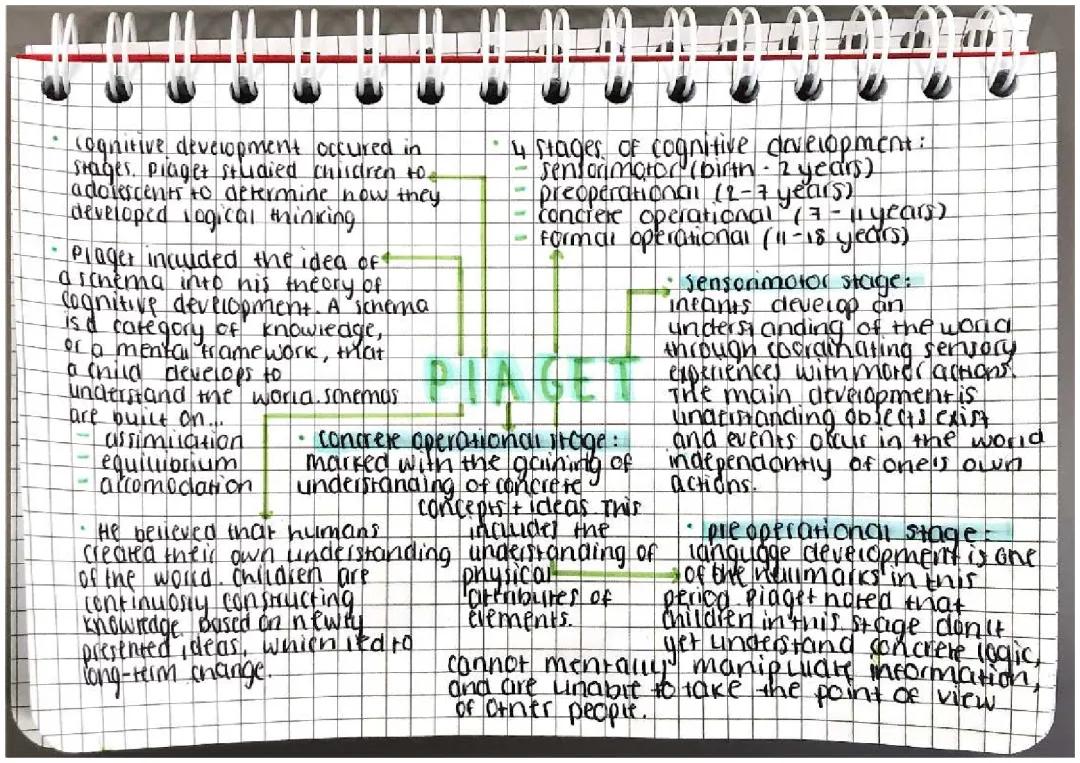 • cognitive development occured in
stages. Piaget studied children to
adolescents to determine how they
developed logical thinking
• Piaget included the idea of
a schema into his theory of
cognitive development. A schema
is a category of knowledge,
or a mental framework, that
a child develops to
understand the world. schemas
are built on...
- assimilation
- equilibrium
- accomodation
• He believed that humans
created their own understanding
of the world. children are
continuosly constructing
knowledge based on newly
presented ideas, which led to
long-term change.
PIAGET
• 4 stages of cognitive development:
- sensorimotor (birth - 2 years)
- preoperational (2-7 years)
- concrete operational (7-11 years)
- formal operational (11-18 years)
• sensorimotor stage:
infants develop an
understanding of the world
through coordinating sensory
experiences with motor actions.
The main development is
understanding objects exist
and events occur in the world
independantly of one's own
actions.
• concrete operational stage:
marked with the gaining of
understanding of concrete
concepts + ideas. This
includes the
understanding of
physical
attributes of
elements.
• preoperational stage:
language development is one
of the hallmarks in this
period. Piaget noted that
children in this stage don't
yet understand concrete logic,
cannot mentally manipulate information,
and are unable to take the point of view
of other people.